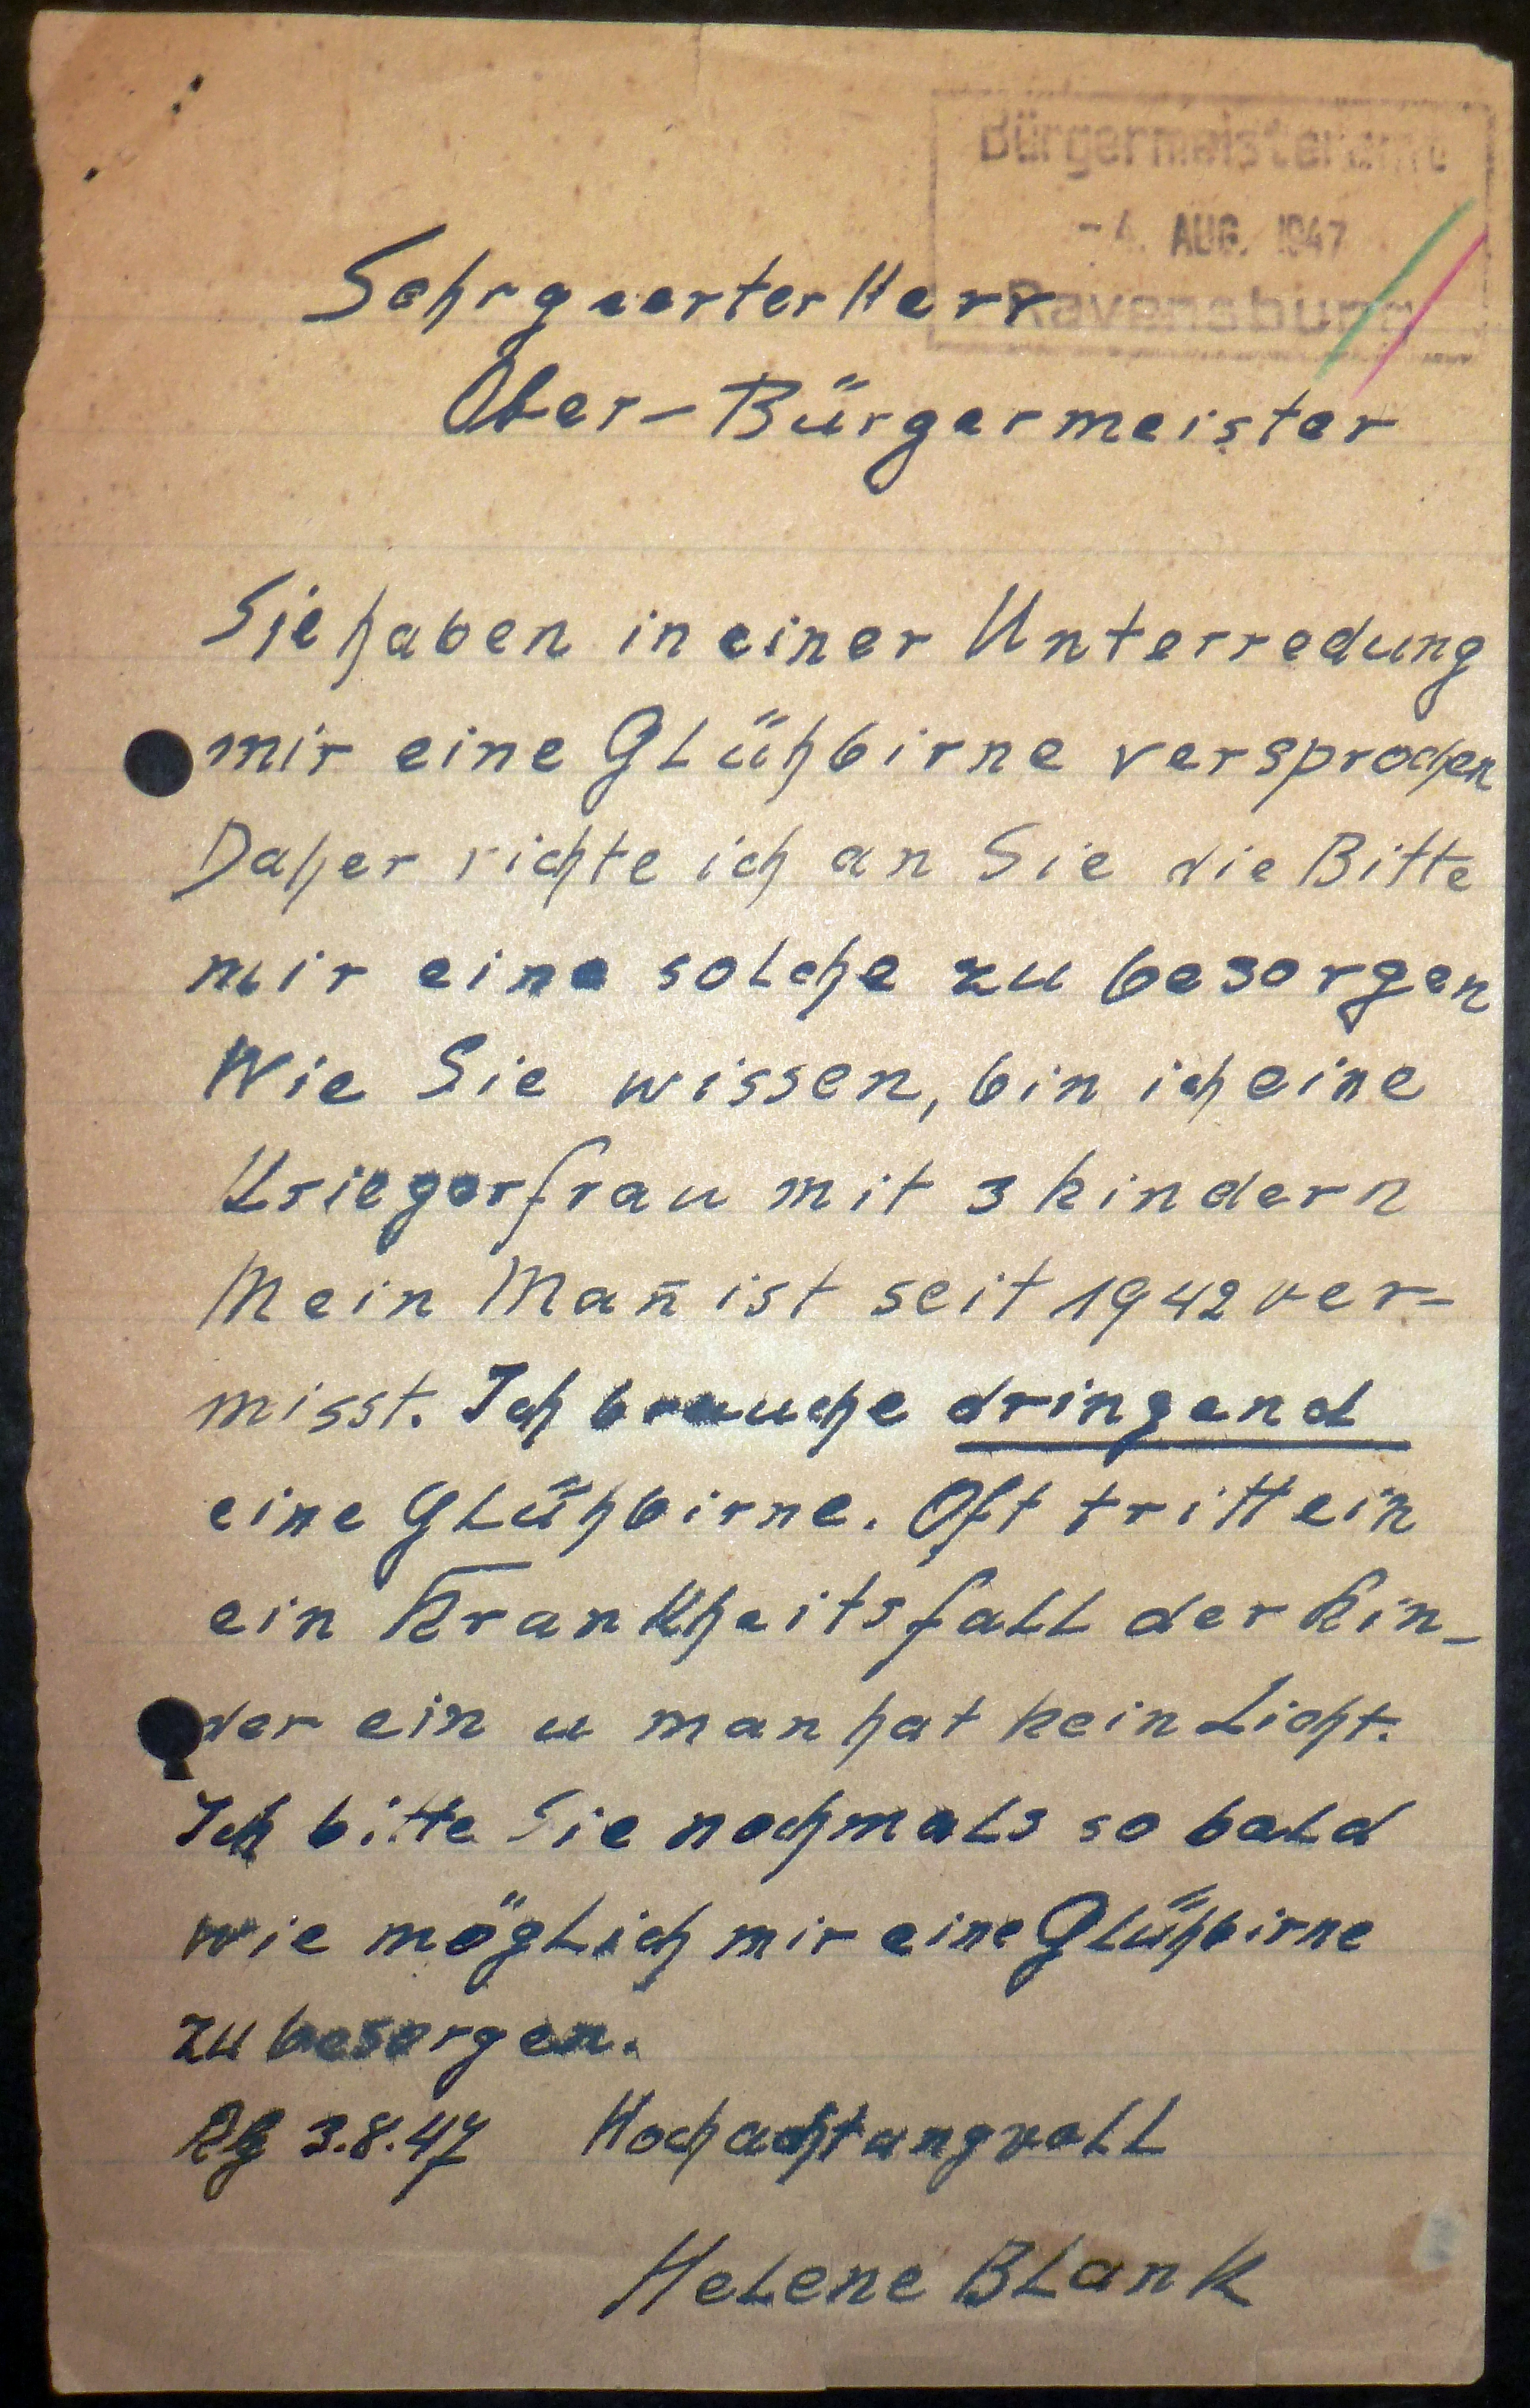 Bürgermeisteramt
- 4. AUG. 1947
Ravensburg
Sehrgeerter Herr
Ober-Bürgermeister
Sie haben in einer Unterredung
mir eine Glühbirne versprochen
Daher richte ich an Sie die Bitte
mir eine solche zu besorgen
Wie Sie wissen, bin ich eine
Kriegerfrau mit 3 kindern
Mein Man̄ ist seit 1942 ver-
misst. Ich brauche dringend
eine Glühbirne. Oft tritt ein
ein Krankheitsfall der Kin-
der ein u man hat kein Licht.
Ich bitte Sie nochmals so bald
wie möglich mir eine Glühbirne
zu besorgen.
Rbg 3.8.47 Hochachtungvoll
Helene Blank